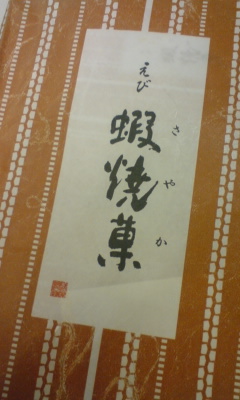 えび
蝦焼菓
さやか